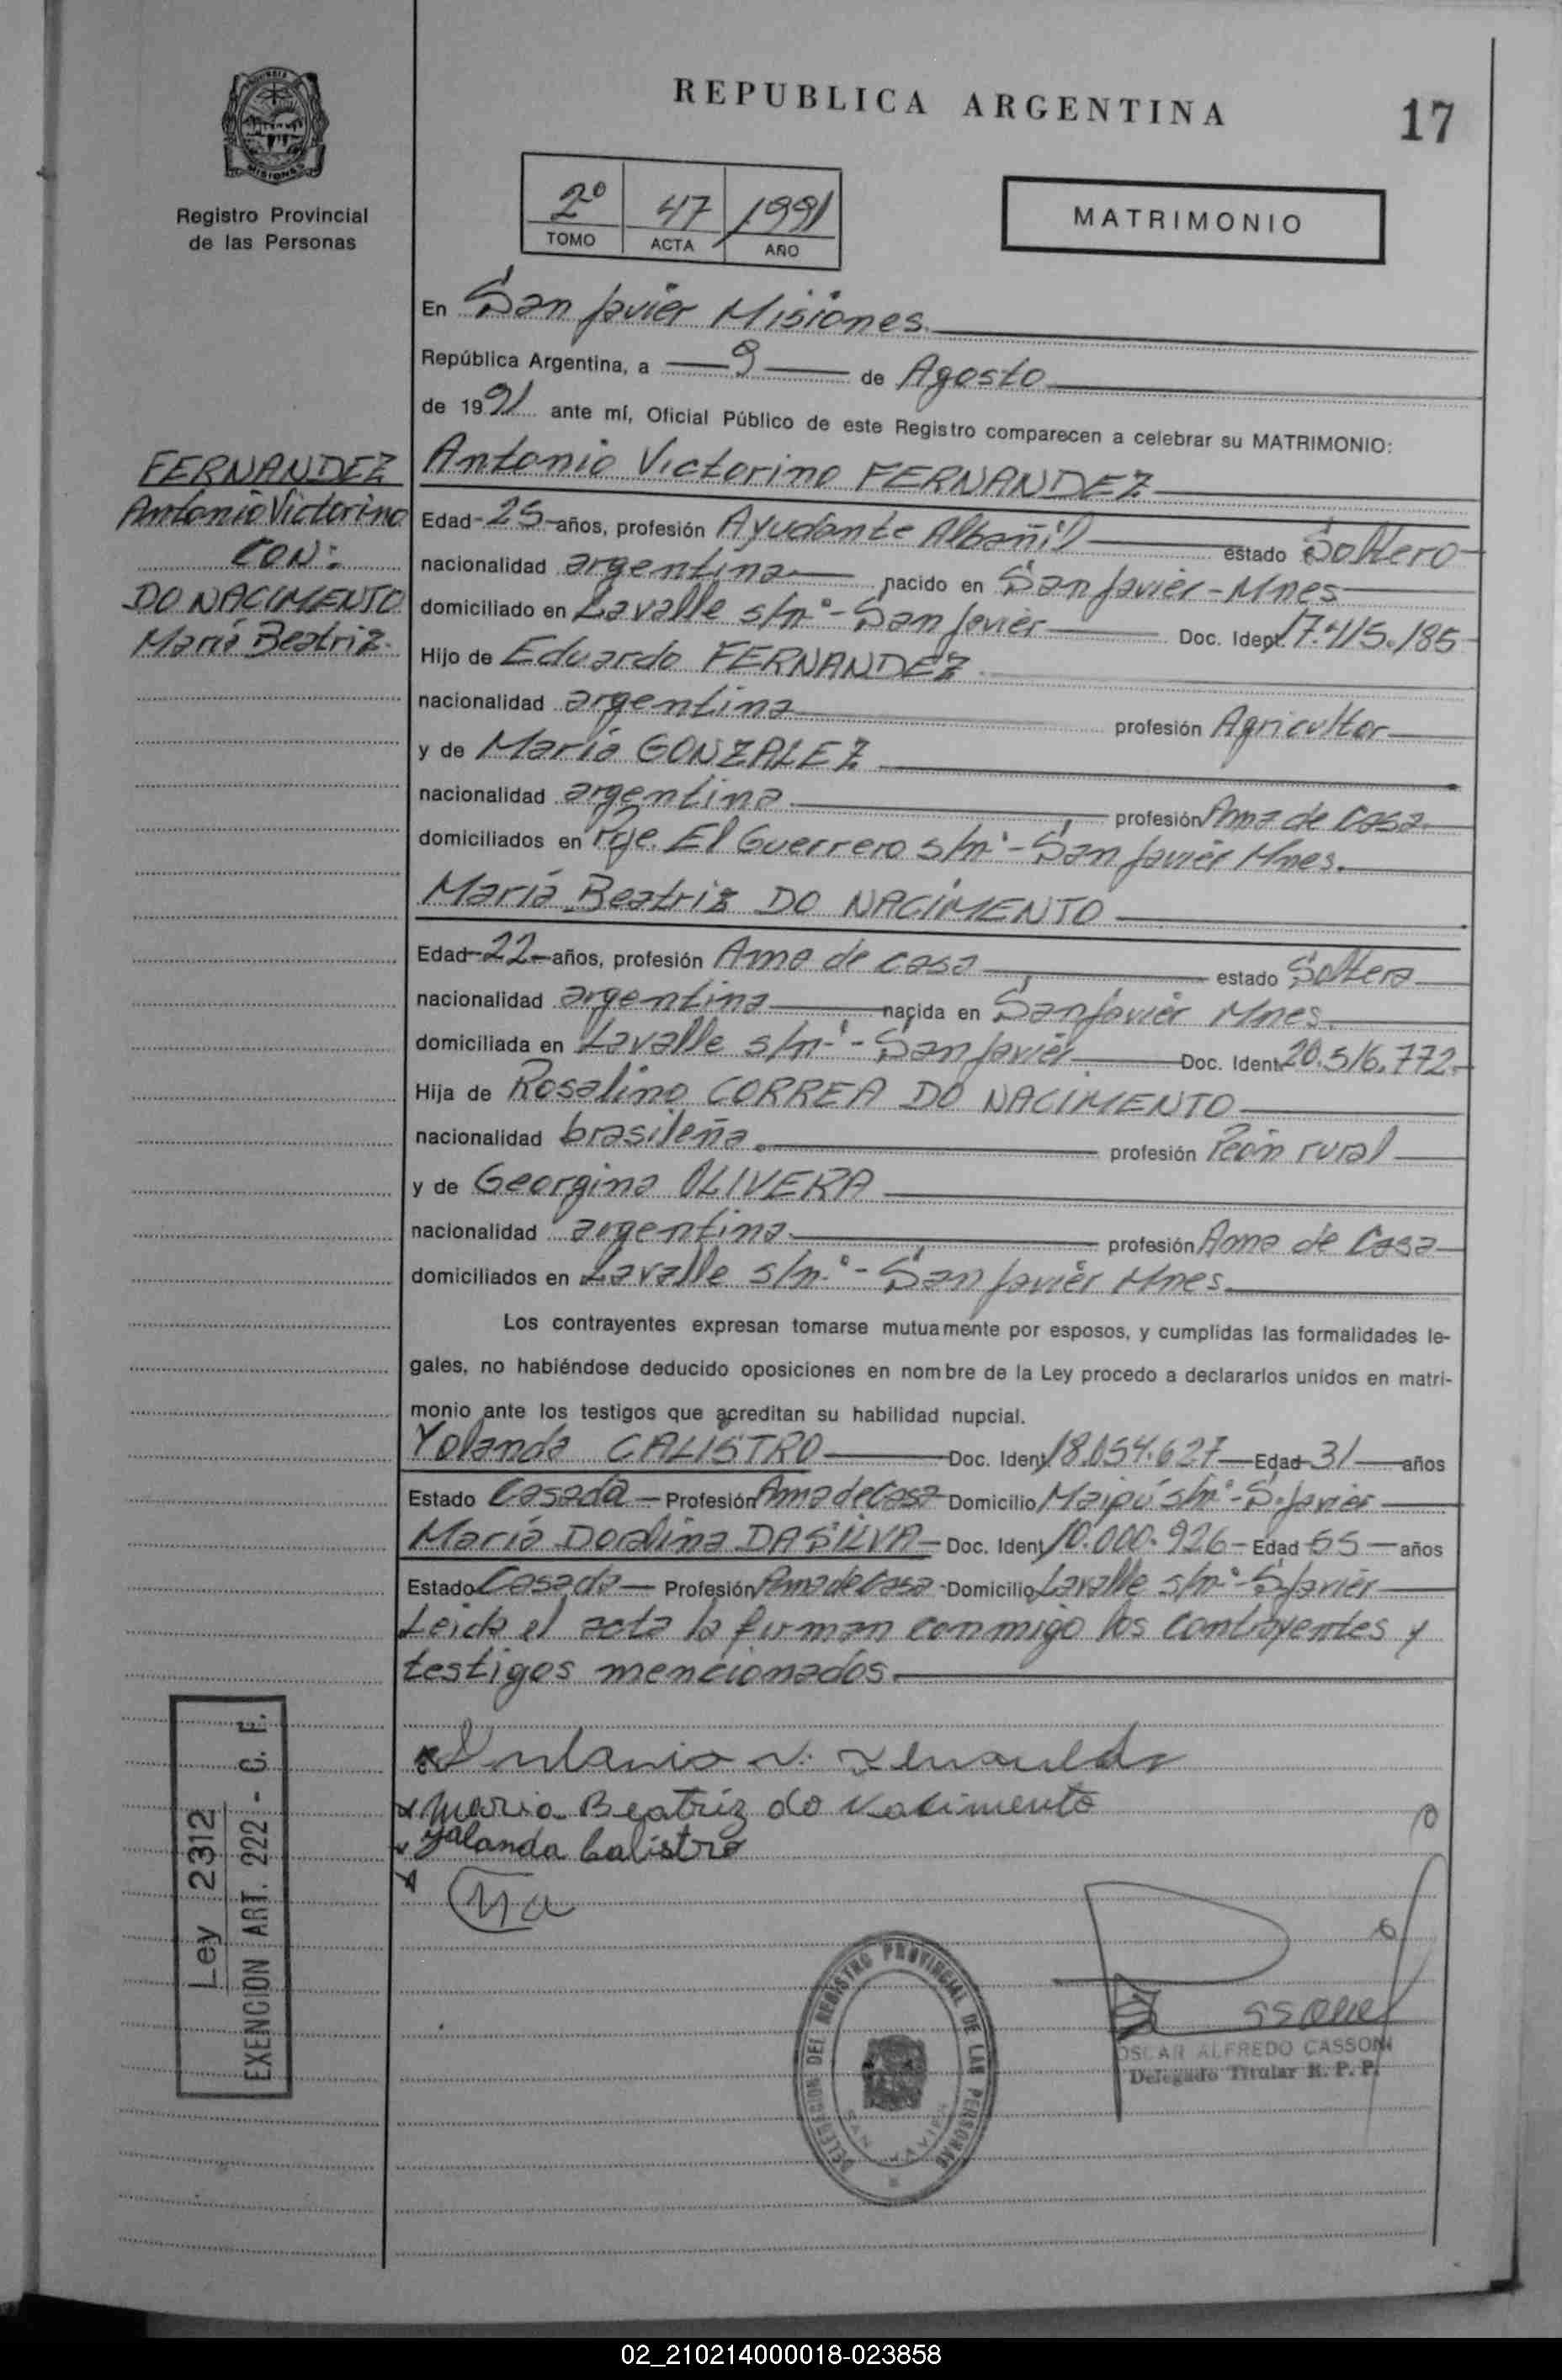 REPUBLICA ARGENTINA
17
MISIONES
Registro Provincial
de las Personas
2º 47 1991
TOMO ACTA AÑO
MATRIMONIO
En San Javier Misiones
República Argentina, a 9 de Agosto
de 1991 ante mí, Oficial Público de este Registro comparecen a celebrar su MATRIMONIO:
FERNANDEZ
Antonio Victorino
CON:
DO NACIMENTO
María Beatriz.
Antonio Victorino FERNANDEZ
Edad-25-años, profesión Ayudante Albañil estado Soltero
nacionalidad argentina nacido en San Javier - Mnes
domiciliado en Lavalle s/nº - San Javier Doc. Ident. 17.415.185
Hijo de Eduardo FERNANDEZ
nacionalidad argentina profesión Agricultor
y de María GONZALEZ
nacionalidad argentina profesión Ama de Casa
domiciliados en Pje. El Guerrero s/nº - San Javier Mnes.
María Beatriz DO NACIMENTO
Edad-22-años, profesión Ama de casa estado Soltera
nacionalidad argentina nacida en San Javier Mnes.
domiciliada en Lavalle s/nº - San Javier Doc. Ident. 20.516.772
Hija de Rosalino CORREA DO NACIMENTO
nacionalidad brasileña profesión Peón rural
y de Georgina OLIVERA
nacionalidad argentina profesión Ama de Casa
domiciliados en Lavalle s/n.º - San Javier Mnes
Los contrayentes expresan tomarse mutuamente por esposos, y cumplidas las formalidades le-
gales, no habiéndose deducido oposiciones en nombre de la Ley procedo a declararlos unidos en matri-
monio ante los testigos que acreditan su habilidad nupcial.
Yolanda CALISTRO Doc. Ident. 18.054.627 Edad 31 años
Estado Casada Profesión Ama de Casa Domicilio Maipú s/nº - S. Javier
María Doralina DA SILVA Doc. Ident. 10.000.926 - Edad 55 años
Estado Casada Profesión Ama de Casa Domicilio Lavalle s/nº - S. Javier
Leida el acta la firman conmigo los contrayentes y
testigos mencionados.
Antonio V. Fernandez
Maria Beatriz do Nacimento
Yolanda Calistro
Ley 2312
EXENCION ART. 222 - C. F.
DELEGACION DEL REGISTRO PROVINCIAL DE LAS PERSONAS
SAN JAVIER
OSCAR ALFREDO CASSONI
Delegado Titular R. P. P.
02_210214000018-023858